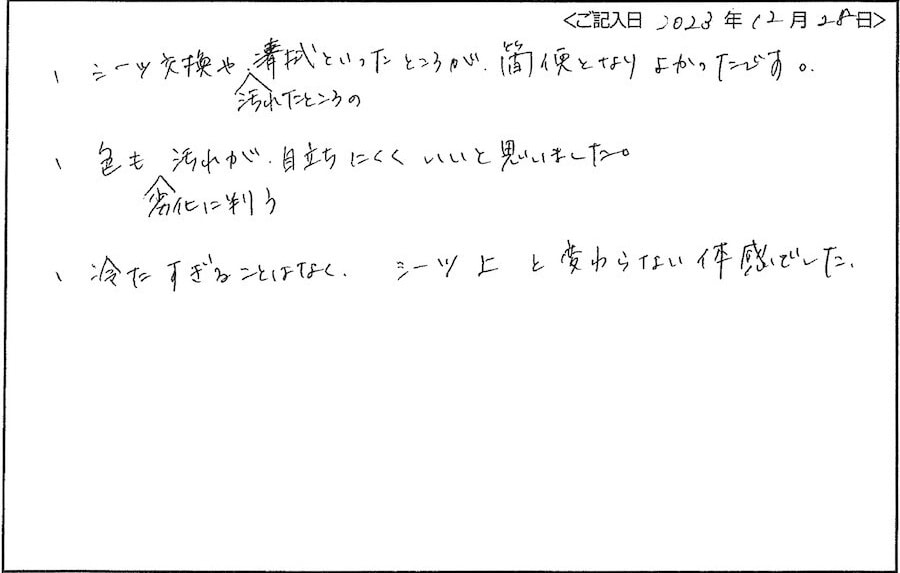 <ご記入日 2023年12月28日>
、シーツ交換や、清拭といったところが、簡便となりよかったです。
汚れたところの
、色も 汚れが、目立ちにくくいいと思いました。
劣化に判う
、冷たすぎることはなく、シーツ上と変わらない体感でした。